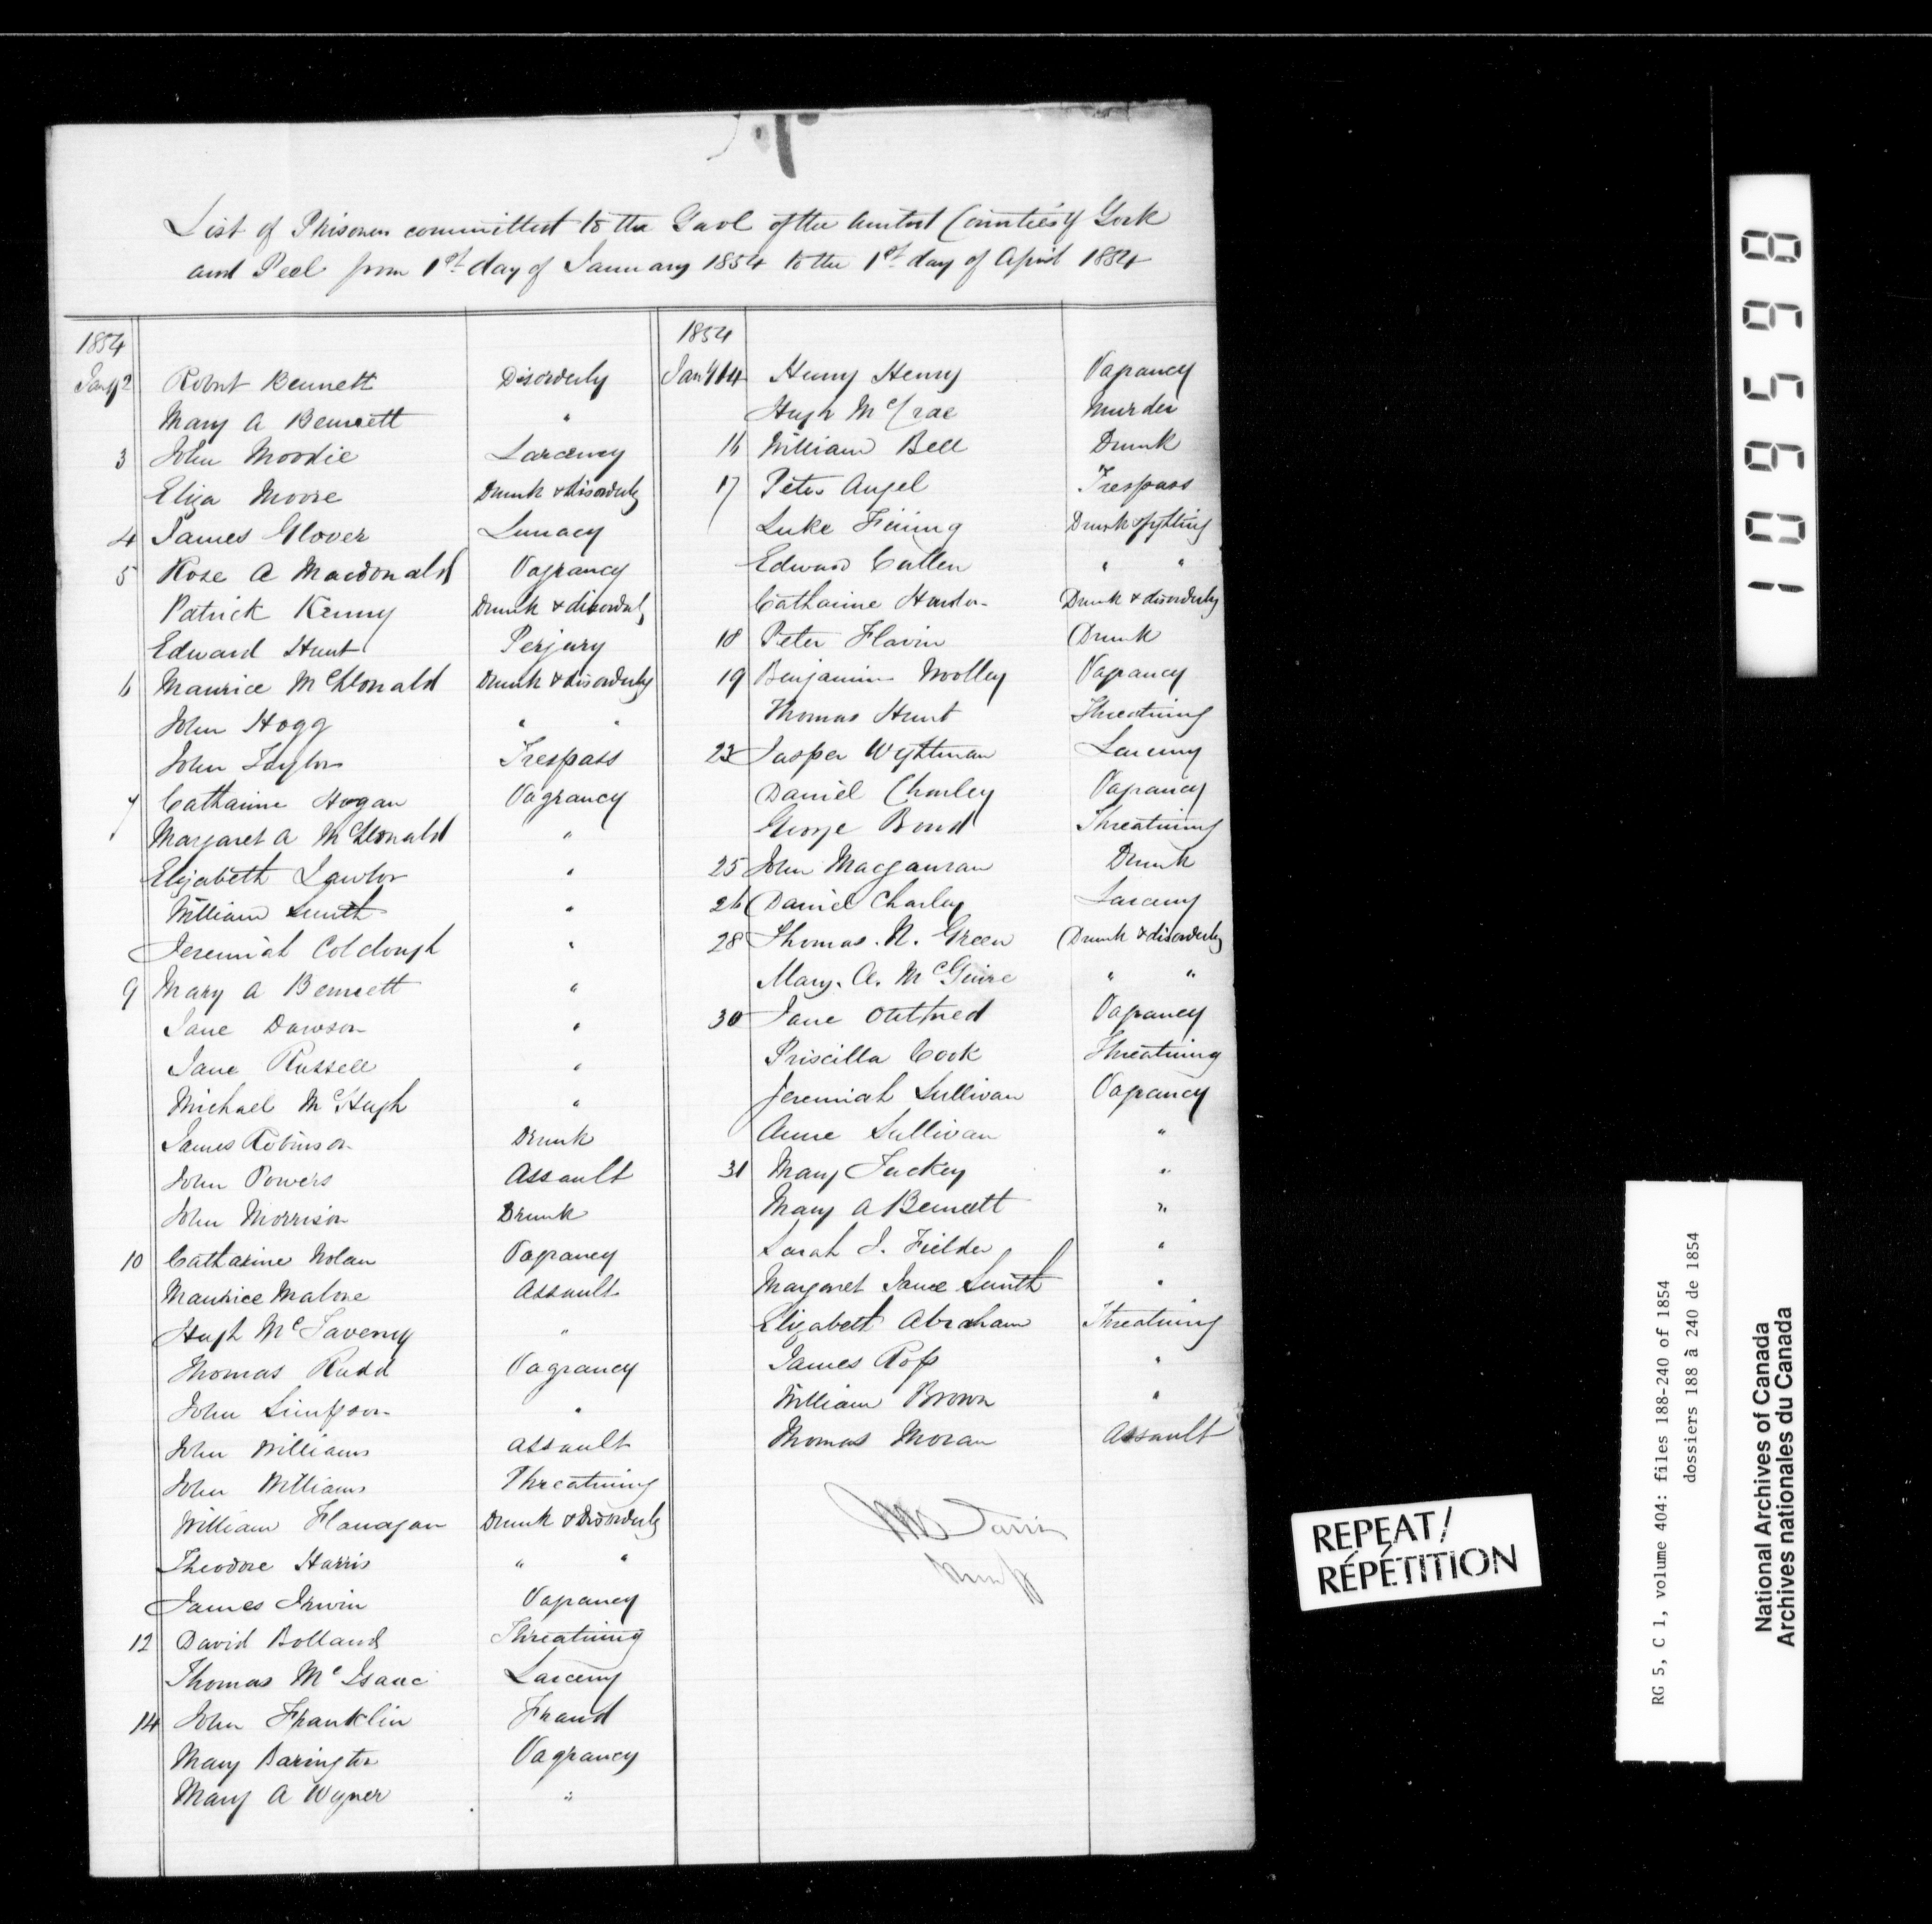 List of Prisoners committed to the Gaol of the United Counties of York
and Peel from 1st day of January 1854 to the 1st day of April 1854
1854
Jany 2 Robert Bennett Disorderly
Mary A Bennett "
3 John Moodie Larceny
Eliza Moore Drunk & disorderly
4 James Glover Lunacy
5 Rose A Macdonald Vagrancy
Patrick Kenny Drunk & disorderly
Edward Hunt Perjury
6 Maurice McDonald Drunk & disorderly
John Hogg " "
John Taylor Trespass
7 Catharine Hogan Vagrancy
Margaret A McDonald "
Elizabeth Lawlor "
William Smith "
Jeremiah Colclough "
9 Mary A Bennett "
Jane Dawson "
Jane Russell "
Michael McHugh "
James Robinson Drunk
John Powers Assault
John Morrison Drunk
10 Catharine Nolan Vagrancy
Maurice Malone Assault
Hugh McTaverny "
Thomas Rudd Vagrancy
John Simpson "
John Williams Assault
John Williams Threatning
William Flanagan Drunk & Disorderly
Theodore Harris " "
James Irwin Vagrancy
12 David Bolland Threatning
Thomas McIsaac Larceny
14 John Franklin Fraud
Mary Barington Vagrancy
Mary A Wyner "
1854
Jany 14 Henry Henry Vagrancy
Hugh McCrae Murder
16 William Bell Drunk
17 Peter Angel Trespass
Luke Drunk & fighting
Edward Cullen " "
Catharine Drunk & disorderly
18 Peter Flavin Drunk
19 Benjamin Woolley Vagrancy
Thomas Hunt Threatning
23 Jasper Wightman Larceny
Daniel Charley Vagrancy
George Bond Threatning
25 John Macgauran Drunk
26 Daniel Charley Larceny
28 Thomas. N. Green Drunk & disorderly
Mary. A. McGuire " "
30 Jane Outhred Vagrancy
Priscilla Cook Threatning
Jeremiah Sullivan Vagrancy
Anne Sullivan "
31 Mary Tuckey "
Mary A Bennett "
Sarah J. Fielder "
Margaret Jane Smith "
Elizabeth Abraham Threatning
James Ross "
William Brown "
Thomas Moran Assault
REPEAT/
RÉPÉTITION
1095598
RG 5, C 1, volume 404: files 188-240 of 1854
dossiers 188 à 240 de 1854
National Archives of Canada
Archives nationales du Canada